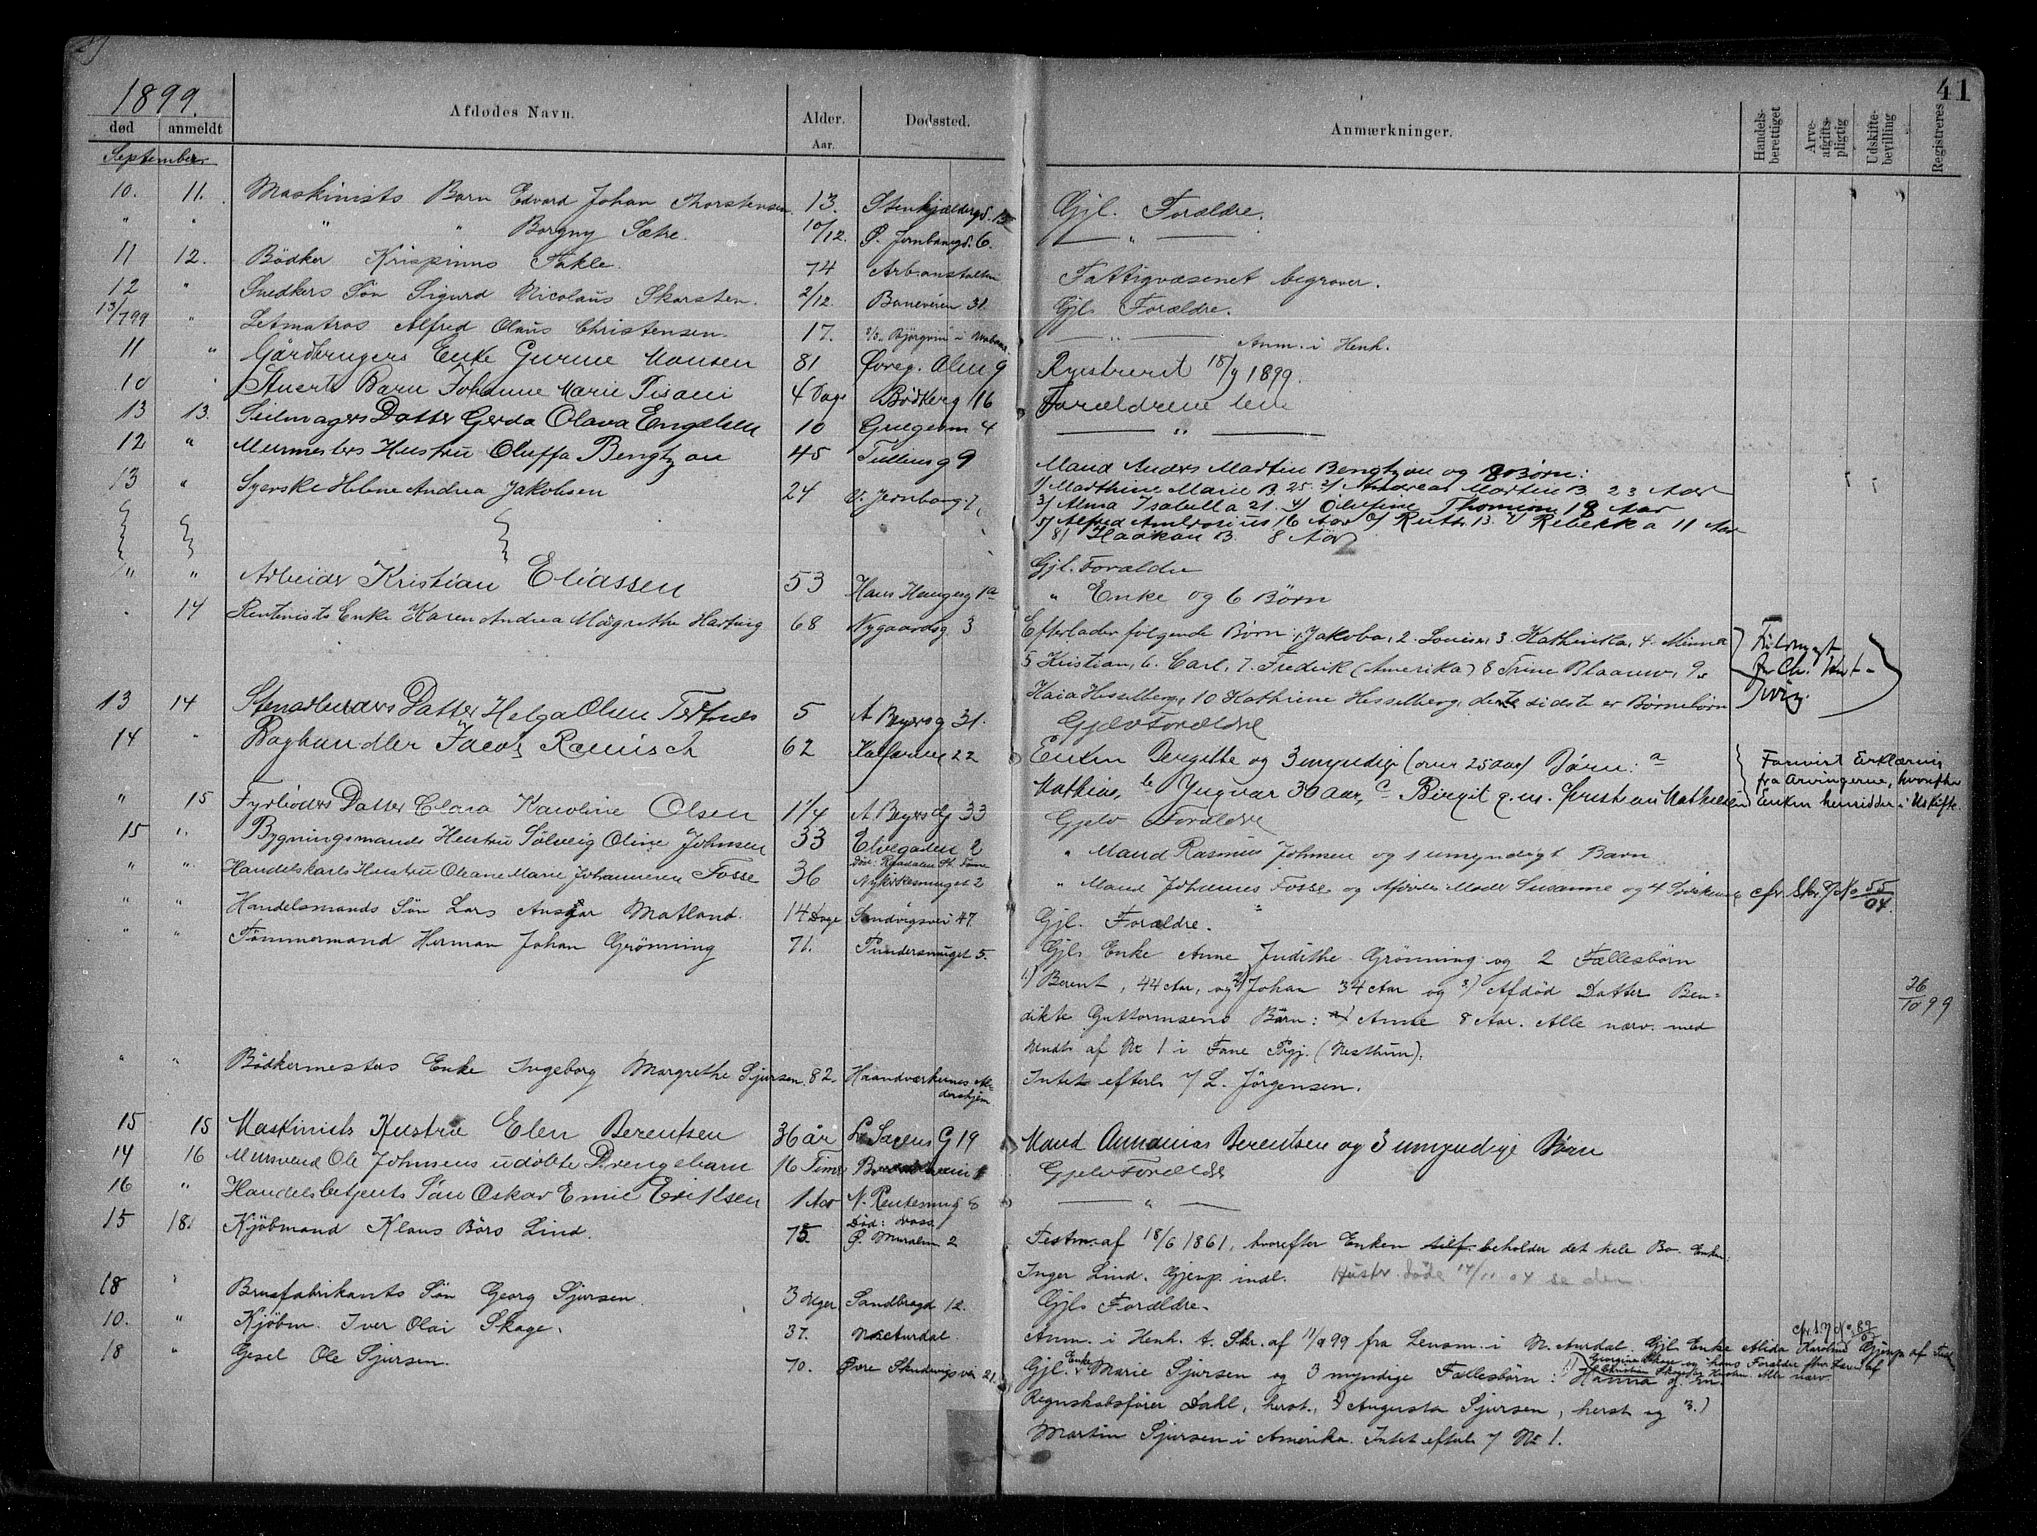 41
1899.
død anmeldt Afdødes Navn. Alder. Aar. Dødssted. Anmærkninger. Handelsberettiget Arveafgiftspligtig Udskiftebevilling Registreres
September
10. 11. Maskinists Barn Edvard Johan Thorstensen. 13. Stenkjældergd. 15 Gjl. Forældre.
" " " " Borgny Sætre. 10/12. Ø. Jernbanegd. 6. — " —
11 12. Bødker Krispinus Takle. 74 Arb.anstalten Fattigvæsenet begraver.
12 " Snedkers Søn Sigurd Nicolaus Skarsten. 2/12. Baneveien 31. Gjl. Forældre.
13/7 99 " Letmatros Alfred Olaus Christensen. 17. S/S. Bjørgvin i — " — Anm. i Henh.
11 " Gårdbrugers Enke Gurine Monsen 81 Øvreg. Alm 9 Registreret 18/9 1899.
10 " Stuerts Barn Johanne Marie Pisani 4 Dage Bødkerg 16 Forældrene leve
13 13. Seilmagers Datter Gerda Olava Engelsen 10 4 — " —
12 " Murmesters Hustru Oluffa Bengtzon 45 Tulliusg 9 Mand Anders Martin Bengtzon og 8 Børn:
13 " Syerske Helene Andrea Jakobsen 24 V. Jernbaneg. 7, 1) Marthine Marie B. 25. 2) Andreas Martin B. 23 Aar
3) Alma Isabella 21. 4) Thomine 18 Aar
5) Alfred Ambrosius 16 Aar 6) Ruth 13. 7) Rebekka 11 Aar
8) Haakon B. 8 Aar
Gjl. Forældre
" " Arbeider Kristian Eliassen 53 Hans Haugesg 1a " Enke og 6 Børn
" 14 Rentenists Enke Karen Andrea Magrethe Hartvig 68 Nygaardsg. 3 Efterlader følgende Børn: 1, Jakoba, 2. Louise, 3. Kathinka, 4. Minna
5 Kristian, 6. Carl, 7. Fredrik (Amerika) 8 Trine Blaauw, 9.
Kaia Hesselberg, 10 Kathrine Hesselberg, de to sidste er Børnebørn
13 14 Stenarbeiders Datter Helga Olsen Tertnes 5 A Beyersg 31. Gjelv Forældre
14 " Boghandler Jacob Ramisch 62 Kalfarveien 22 Enken Bergitte og 3 myndige (over 25 aar) Børn: a
Mathias, b Yngvar 30 aar, c Birgit g. m. Kristian Mathiesen
Enken hensidder i Uskifte.
" 15 Fyrbøders Datter Clara Karoline Olsen 1 1/4 A Beyers G 33 Gjelv Forældre
15 " Bygningsmands Hustru Solveig Oline Johnsen 33 Elvegaden 2 " Mand Rasmus Johnsen og 1 umyndigt Barn
" " Handelskarls Hustru Oleane Marie Johannesen Fosse 36 Nykirkesmuget 2 " Mand Johannes Fosse og Afdødes Moder Susanne og 4 Søskende cfr. Skr. J. No 55/04.
" " Handelsmands Søn Lars Ansgar Matland. 14 Dage Sandvigsvei 47. Gjl. Forældre.
" " Tømmermand Herman Johan Grønning 71. Tundersmuget 5. Gjl. Enke Anne Judithe Grønning og 2 Fællesbørn
1) Berent, 44 Aar, og 2) Johan 34 Aar og 3) Afdød Datter Ben=
dikte Guttormsens Børn: a) Anne 8 Aar. Alle nærv. med
Undt. af No 1 i Fane Prgj. (Nesttun). 26/10 99
" " Bødkermesters Enke Ingeborg Margrethe Sjursen. 82. Haandværkernes Al=
dershjem Intet efterl. L. Jørgensen.
15 15 Maskinists Hustru Elen Berentsen 36 år L. Sagens G 19 Mand Annanias Berentsen og 3 umyndige Børn
14 16 Mursvend Ole Johnsens udøbte Drengebarn 16 Timer Gjelv Forældre
16 " Handelsbetjents Søn Oskar Emil Eriksen 1 Aar N. Rentesmug 8 — " —
15 18. Kjøbmand Klaus Børs Lind. 75. Død: Voss. Ø. Muralm 2 Testm. af 18/6 1861, hvorefter Enken beholder det hele Bo. Enken
Inger Lind. Gjenp. indl. Hustr. døde 14/11 04 se den
18 " Brusfabrikants Søn Georg Sjursen. 3 Uger Sandbrogd 12. Gjl. Forældre.
10. " Kjøbm. Iver Olai Skage. 37. N. Aurdal. Anm. i Henh. t. Skr. af 11/9 99 fra Lensm. i N. Aurdal. Gjl. Enke Alida Karoline
18 " Gesel Ole Sjursen. 70. Øvre Standvigsvei 21. Gjl. Enke Marie Sjursen og 3 myndige Fællesbørn: 1) Hanna g. m.
Regnskabsfører Dahl, herst., 2) Augusta Sjursen, herst. og 3.)
Martin Sjursen i Amerika. Intet efterl. No 1.